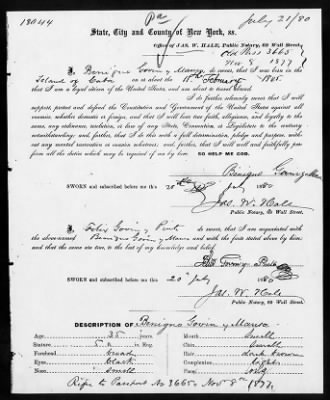 18044
Pa
July 21/80
State, City and County of New York, ss.
Office of JAS. W. HALE, Public Notary, 69 Wall Street.
Old Pass 3665
Nov 8 1877
I, Benigno Govin y Manso, do swear, that I was born in the
Island of Cuba on or about the 18th February 1845
that I am a loyal citizen of the United States, and am about to travel abroad.
And I do further solemnly swear that I will
support, protect and defend the Constitution and Government of the United States against all
enemies, whether domestic or foreign, and that I will bear true faith, allegiance, and loyalty to the
same, any ordinance, resolution, or law of any State, Convention, or Legislature to the contrary
notwithstanding; and further, that I do this with a full determination, pledge and purpose, without
any mental reservation or evasion whatever; and, further, that I will well and faithfully perform
all the duties which may be required of me by law. SO HELP ME GOD.
Benigno Govin y Manso
SWORN and subscribed before me this
20th July 1880
Jas. W. Hale
Public Notary, 69 Wall Street.
I, Felix Govin y Pinto do swear, that I am acquainted with
the above-named Benigno Govin y Manso and with the facts stated above by him:
and that the same are true, to the best of my knowledge and belief.
Felix Govin y Pinto
SWORN and subscribed before me this
20th July 1880
Jas. W. Hale
Public Notary, 69 Wall Street.
DESCRIPTION OF Benigno Govin y Manso
Age, 35 years Mouth small
Stature 5 ft. Eng. Chin small
Forehead broad Hair dark brown
Eyes black Complexion light
Nose small Face
Refer to Passport No 3665. Nov 8th 1877.